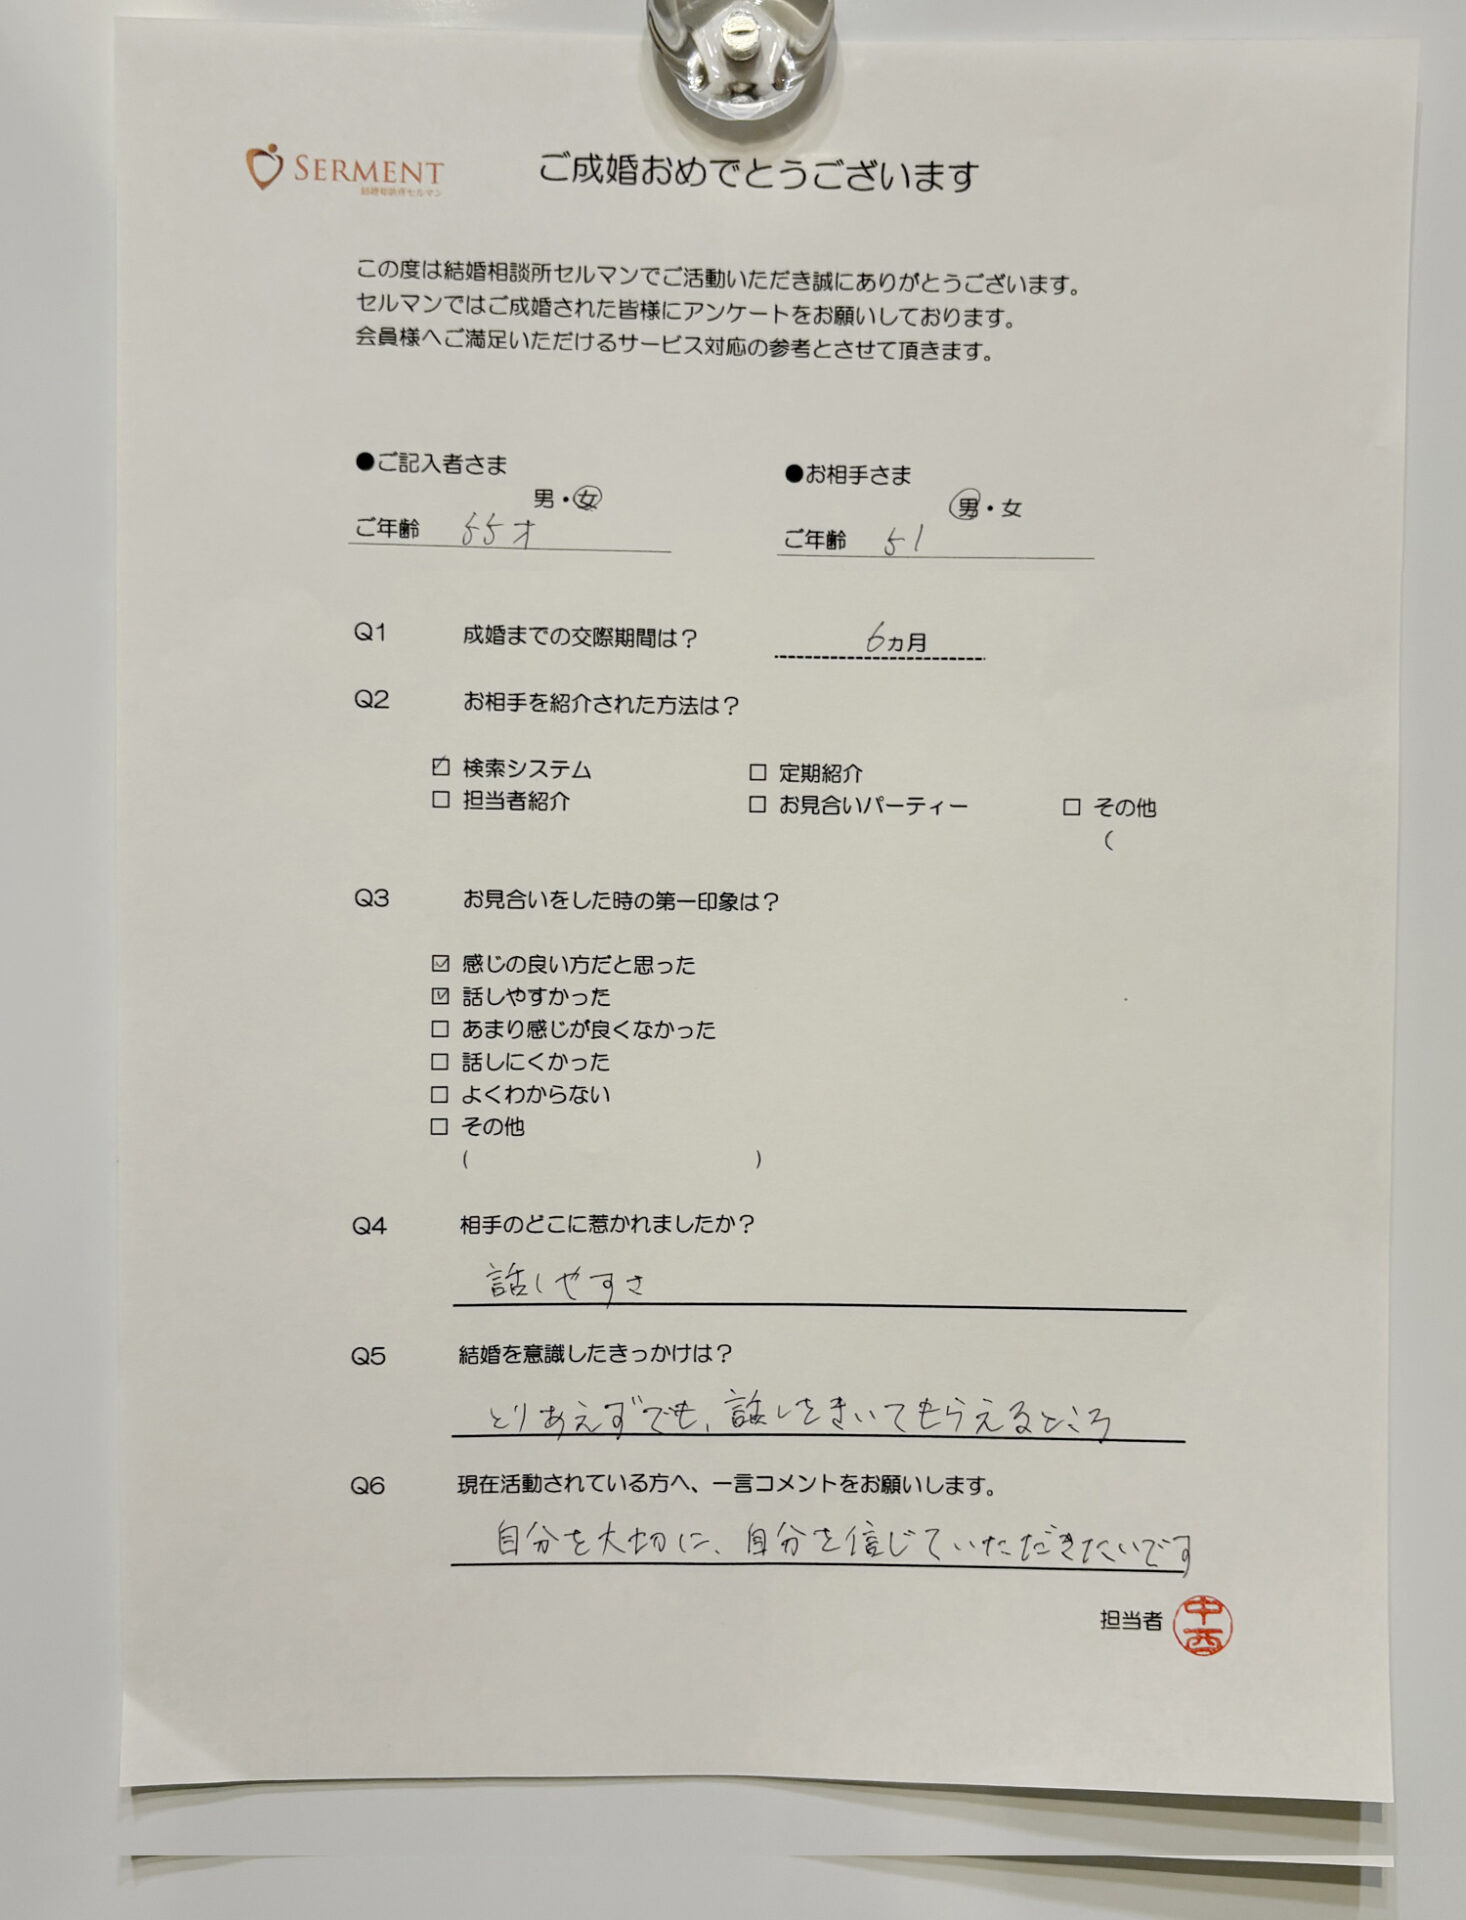 SERMENT
結婚相談所セルマン
ご成婚おめでとうございます
この度は結婚相談所セルマンでご活動いただき誠にありがとうございます。
セルマンではご成婚された皆様にアンケートをお願いしております。
会員様へご満足いただけるサービス対応の参考とさせて頂きます。
●ご記入者さま
男・女
ご年齢 55才
●お相手さま
男・女
ご年齢 51
Q1 成婚までの交際期間は? 6カ月
Q2 お相手を紹介された方法は?
☑ 検索システム □ 定期紹介
□ 担当者紹介 □ お見合いパーティー □ その他
(
Q3 お見合いをした時の第一印象は?
☑ 感じの良い方だと思った
☑ 話しやすかった
□ あまり感じが良くなかった
□ 話しにくかった
□ よくわからない
□ その他
( )
Q4 相手のどこに惹かれましたか?
話しやすさ
Q5 結婚を意識したきっかけは?
とりあえずでも、話しをきいてもらえるところ
Q6 現在活動されている方へ、一言コメントをお願いします。
自分を大切に、自分を信じていただきたいです
担当者 中西